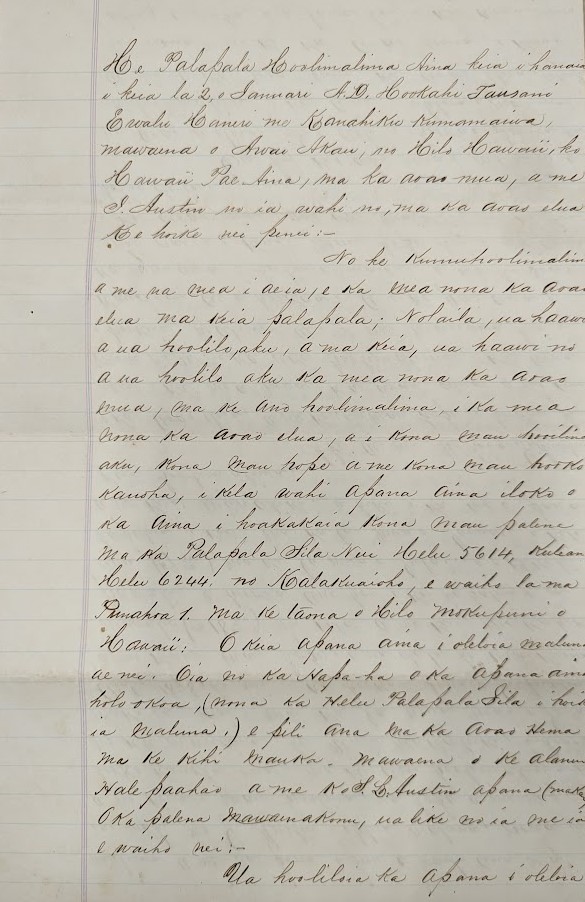 He Palapala Hoolimalima Aina keia i hanaia
i keia la 2, o Ianuari A.D. Hookahi Tausani
Ewalu Haneri me Kanahiku Kumamaiwa,
mawaena o Awai Akau, no Hilo Hawaii, ko
Hawaii Pae Aina, ma ka aoao mua, a me
S. Austin no ia wahi no, ma ka aoao elua
Ke hoike nei penei:-
No ke Kumuhoolimalim
a me na mea i aeia, e ka mea nona ka aoao
elua ma keia palapala; Nolaila, ua haawi
a ua hoolilo, aku, a ma keia, ua haawi no
a ua hoolilo aku ka mea nona ka aoao
mua, ma ke ano hoolimalima, i ka mea
nona ka aoao elua, a i kona mau hooilina
aku, kona mau hope a me kona mau hooko
kauoha, i kela wahi apana aina iloko o
ka aina i hoakakaia kona mau palena
ma ka Palapala Sila Nui Helu 5614, Kulean
Helu 6244. no Kalakuaioho, e waiho la ma
Punahoa 1. ma ke taona o Hilo Mokupuni o
Hawaii: O keia apana aina i oleloia maluna
ae nei. Oia no ka Hapa-ha o ka apana aina
holookoa, (nona ka Helu Palapala Sila i hoik
ia maluna,) e pili ana ma ka Aoao Hema
ma ke kihi mauka. mawaena o ke alanui
Halepaahao a me ko S. L. Austin apana (makai
O ka palena Mawaenakonu, ua like no ia me ia
e waiho nei:-
Ua hooliloia ka apana i oleloia